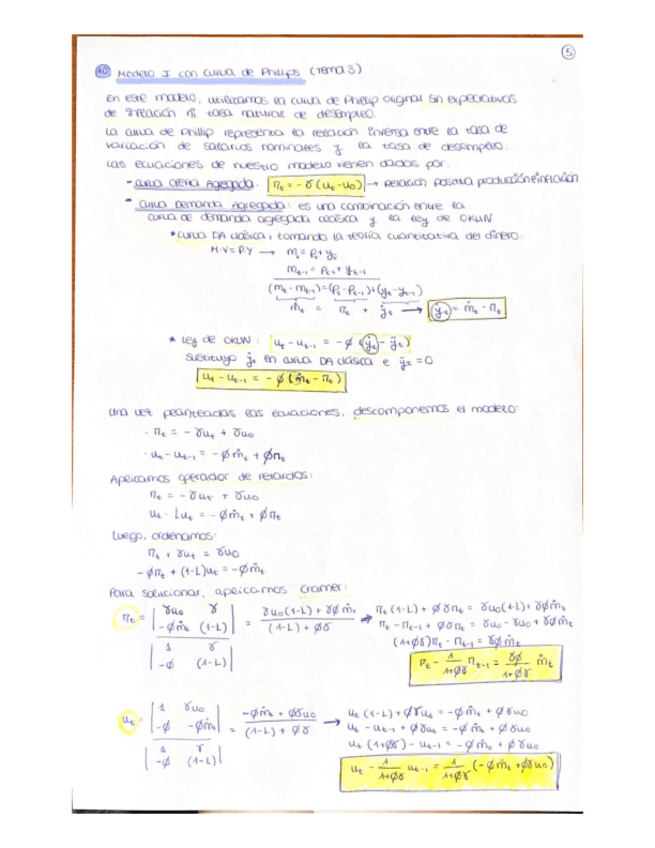 5
10 Modelo I con curva de Phillips (Tema 3)
En este modelo, utilizamos la curva de Phillip original sin expectativas
de inflación ni tasa natural de desempleo.
La curva de Phillip representa la relación inversa entre la tasa de
variación de salarios nominales y la tasa de desempleo.
Las ecuaciones de nuestro modelo vienen dados por:
- Curva Oferta Agregada: π_t = -γ(u_t - u_0) → Relación positiva producción e inflación
- Curva Demanda Agregada: es una combinación entre la
curva de demanda agregada clásica y la ley de OKUN
* Curva DA clásica, tomando la teoría cuantitativa del dinero:
M·V = P·Y → m_t = p_t + y_t
m_t-1 = p_t-1 + y_t-1
(m_t - m_t-1) = (p_t - p_t-1) + (y_t - y_t-1)
ṁ_t = π_t + ẏ_t → ẏ_t = ṁ_t - π_t
* Ley de OKUN: u_t - u_t-1 = -φ (ẏ_t - ȳ_t)
Sustituyo ẏ_t en curva DA clásica e ȳ_t = 0
u_t - u_t-1 = -φ (ṁ_t - π_t)
Una vez planteadas las ecuaciones, descomponemos el modelo:
· π_t = -γu_t + γu_0
· u_t - u_t-1 = -φṁ_t + φπ_t
Aplicamos operador de retardos:
π_t = -γu_t + γu_0
u_t - Lu_t = -φṁ_t + φπ_t
Luego, ordenamos:
π_t + γu_t = γu_0
-φπ_t + (1-L)u_t = -φṁ_t
Para solucionar, aplicamos Cramer:
π_t = |γu_0 γ; -φṁ_t (1-L)| / |1 γ; -φ (1-L)| = (γu_0(1-L) + γφṁ_t) / ((1-L) + φγ) → π_t(1-L) + φγπ_t = γu_0(1-L) + γφṁ_t
π_t - π_t-1 + φγπ_t = γu_0 - γu_0 + γφṁ_t
(1+φγ)π_t - π_t-1 = γφṁ_t
π_t - 1/(1+φγ) π_t-1 = γφ/(1+φγ) ṁ_t
u_t = |1 γu_0; -φ -φṁ_t| / |1 γ; -φ (1-L)| = (-φṁ_t + φγu_0) / ((1-L) + φγ) → u_t(1-L) + φγu_t = -φṁ_t + φγu_0
u_t - u_t-1 + φγu_t = -φṁ_t + φγu_0
u_t(1+φγ) - u_t-1 = -φṁ_t + φγu_0
u_t - 1/(1+φγ) u_t-1 = 1/(1+φγ) (-φṁ_t + φγu_0)